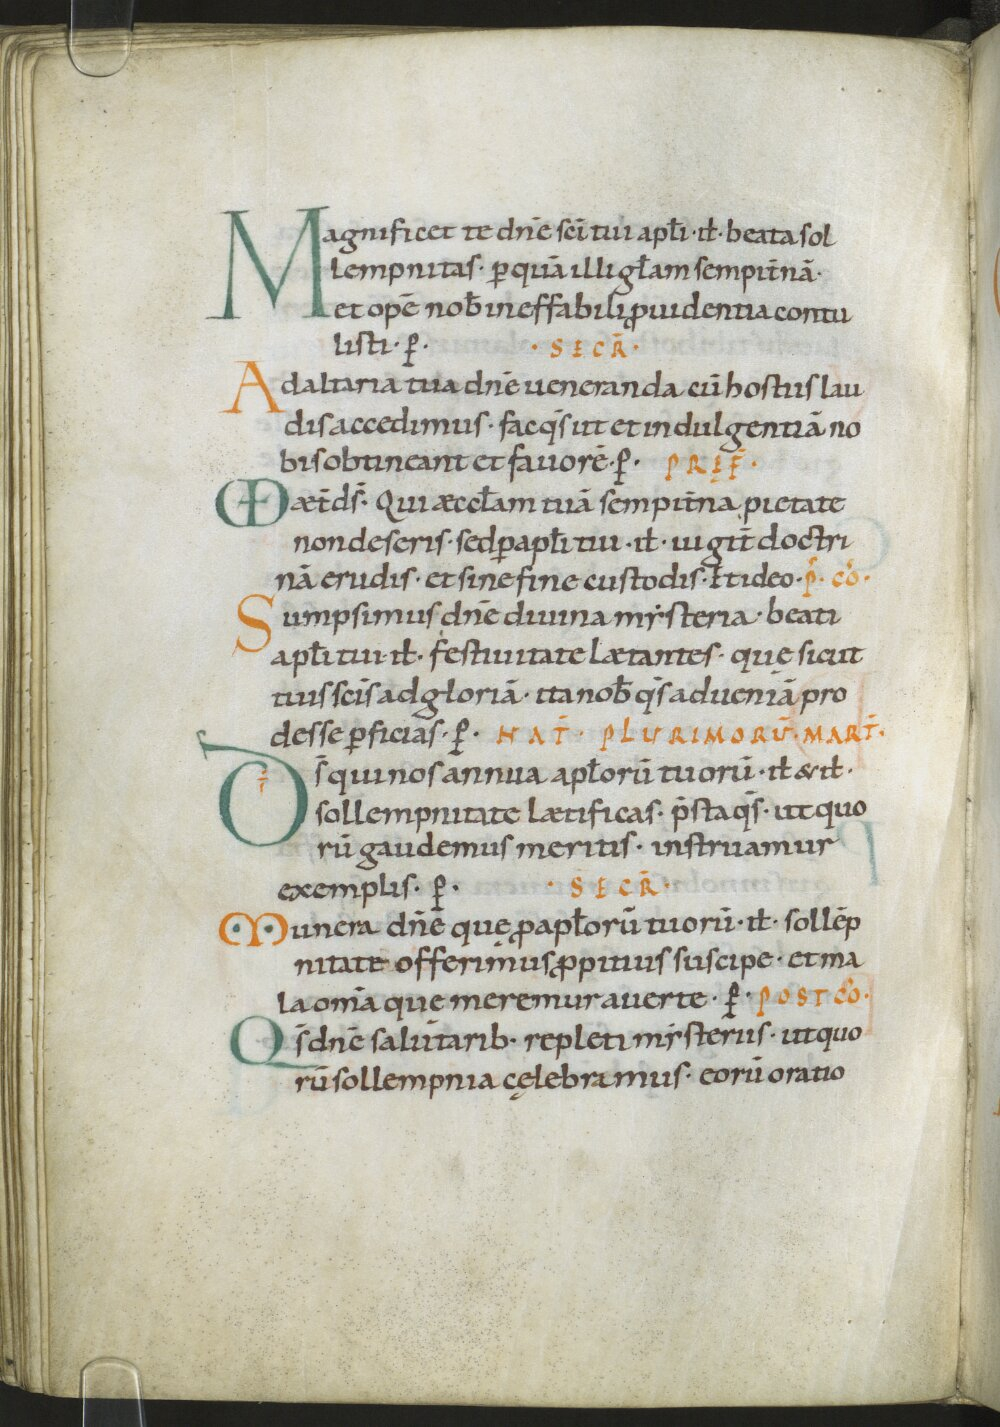 Magnificet te dn̄e sc̄i tui apłi · ił · beata sol
lempnitas · ꝑ quā illi gl̄am sempit̄nā ·
et opē nob̄ ineffabili ꝓuidentia contu
listi · ꝑ · · SECR̄ ·
Ad altaria tua dn̄e ueneranda cū hostiis lau
dis accedimus · fac q̄s ut et indulgentiā no
bis obtineant et fauorē · ꝑ · PREF̄ ·
VD æt̄ ds̄ · Qui æccl̄am tuā sempit̄na pietate
non deseris · sed ꝑ apłi tui · ił · iugit̄ doctri
nā erudis · et sine fine custodis · Et ideo · P̄ · CŌ ·
Sumpsimus dn̄e diuina mẏsteria · beati
apłi tui · ił · festiuitate lætantes · quę sicut
tuis sc̄is ad gloriā · ita nob̄ q̄s ad ueniā pro
desse ꝑficias · ꝑ · NAT̄ · PLURIMORŪ · MART̄ ·
Ds̄ qui nos annua apłorū tuorū · ił & ił ·
sollempnitate lætificas · p̄sta q̄s · ut quo
rū gaudemus meritis · instruamur
exemplis · ꝑ · · SECR̄ ·
Munera dn̄e quę ꝓ apłorū tuorū · ił · sollēp
nitate offerimus ꝓpitius suscipe · et ma
la om̄a quę meremur auerte · ꝑ · POST CŌ ·
Qs̄ dn̄e salutarib · repleti mẏsteriis · ut quo
rū sollempnia cęlebramus · eorū oratio